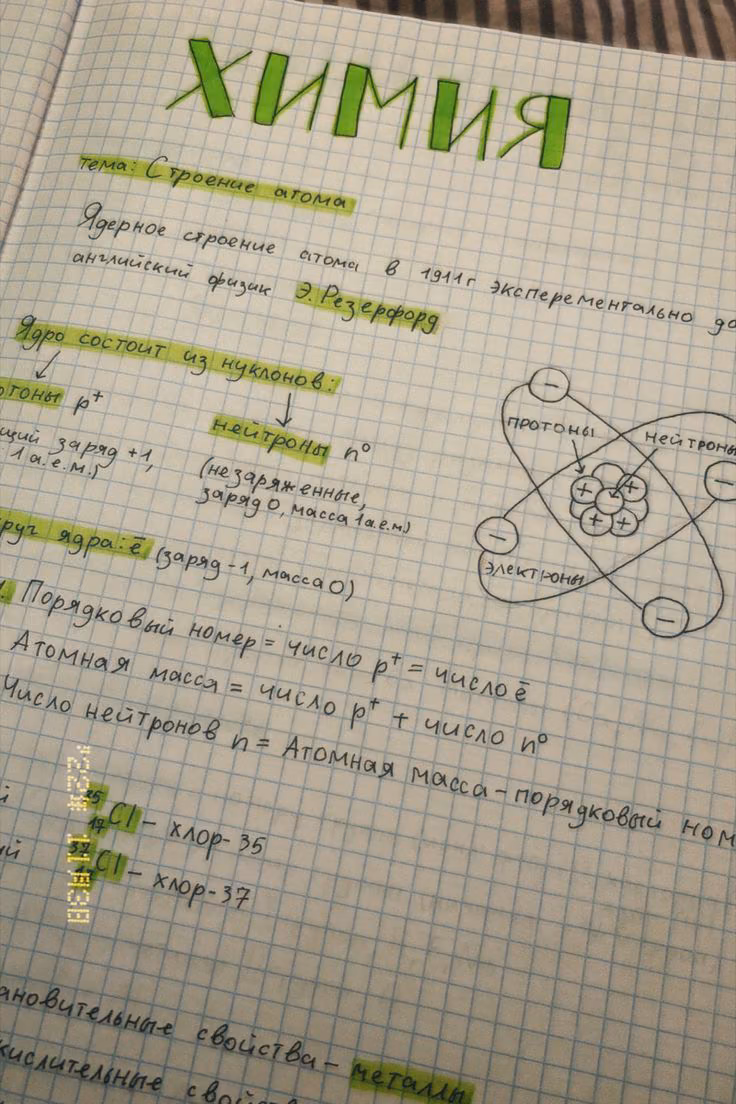 ХИМИЯ
тема: Строение атома
Ядерное строение атома в 1911г эксперементально до
английский физик Э. Резерфорд
Ядро состоит из нуклонов:
отоны p⁺
нейтроны n⁰
щий заряд +1,
1 а.е.м.)
(незаряженные,
заряд 0, масса 1а.е.м.)
протоны
нейтроны
электроны
круг ядра: ē (заряд -1, масса 0)
1. Порядковый номер = число p⁺ = число ē
Атомная масса = число p⁺ + число n⁰
Число нейтронов n = Атомная масса - порядковый ном
³⁵₁₇Cl – хлор-35
³⁷Cl – хлор-37
ановительные свойства – металлы
кислительные свойст